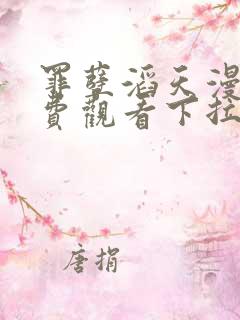 罪孽滔天漫
費觀看下拉
唐捐